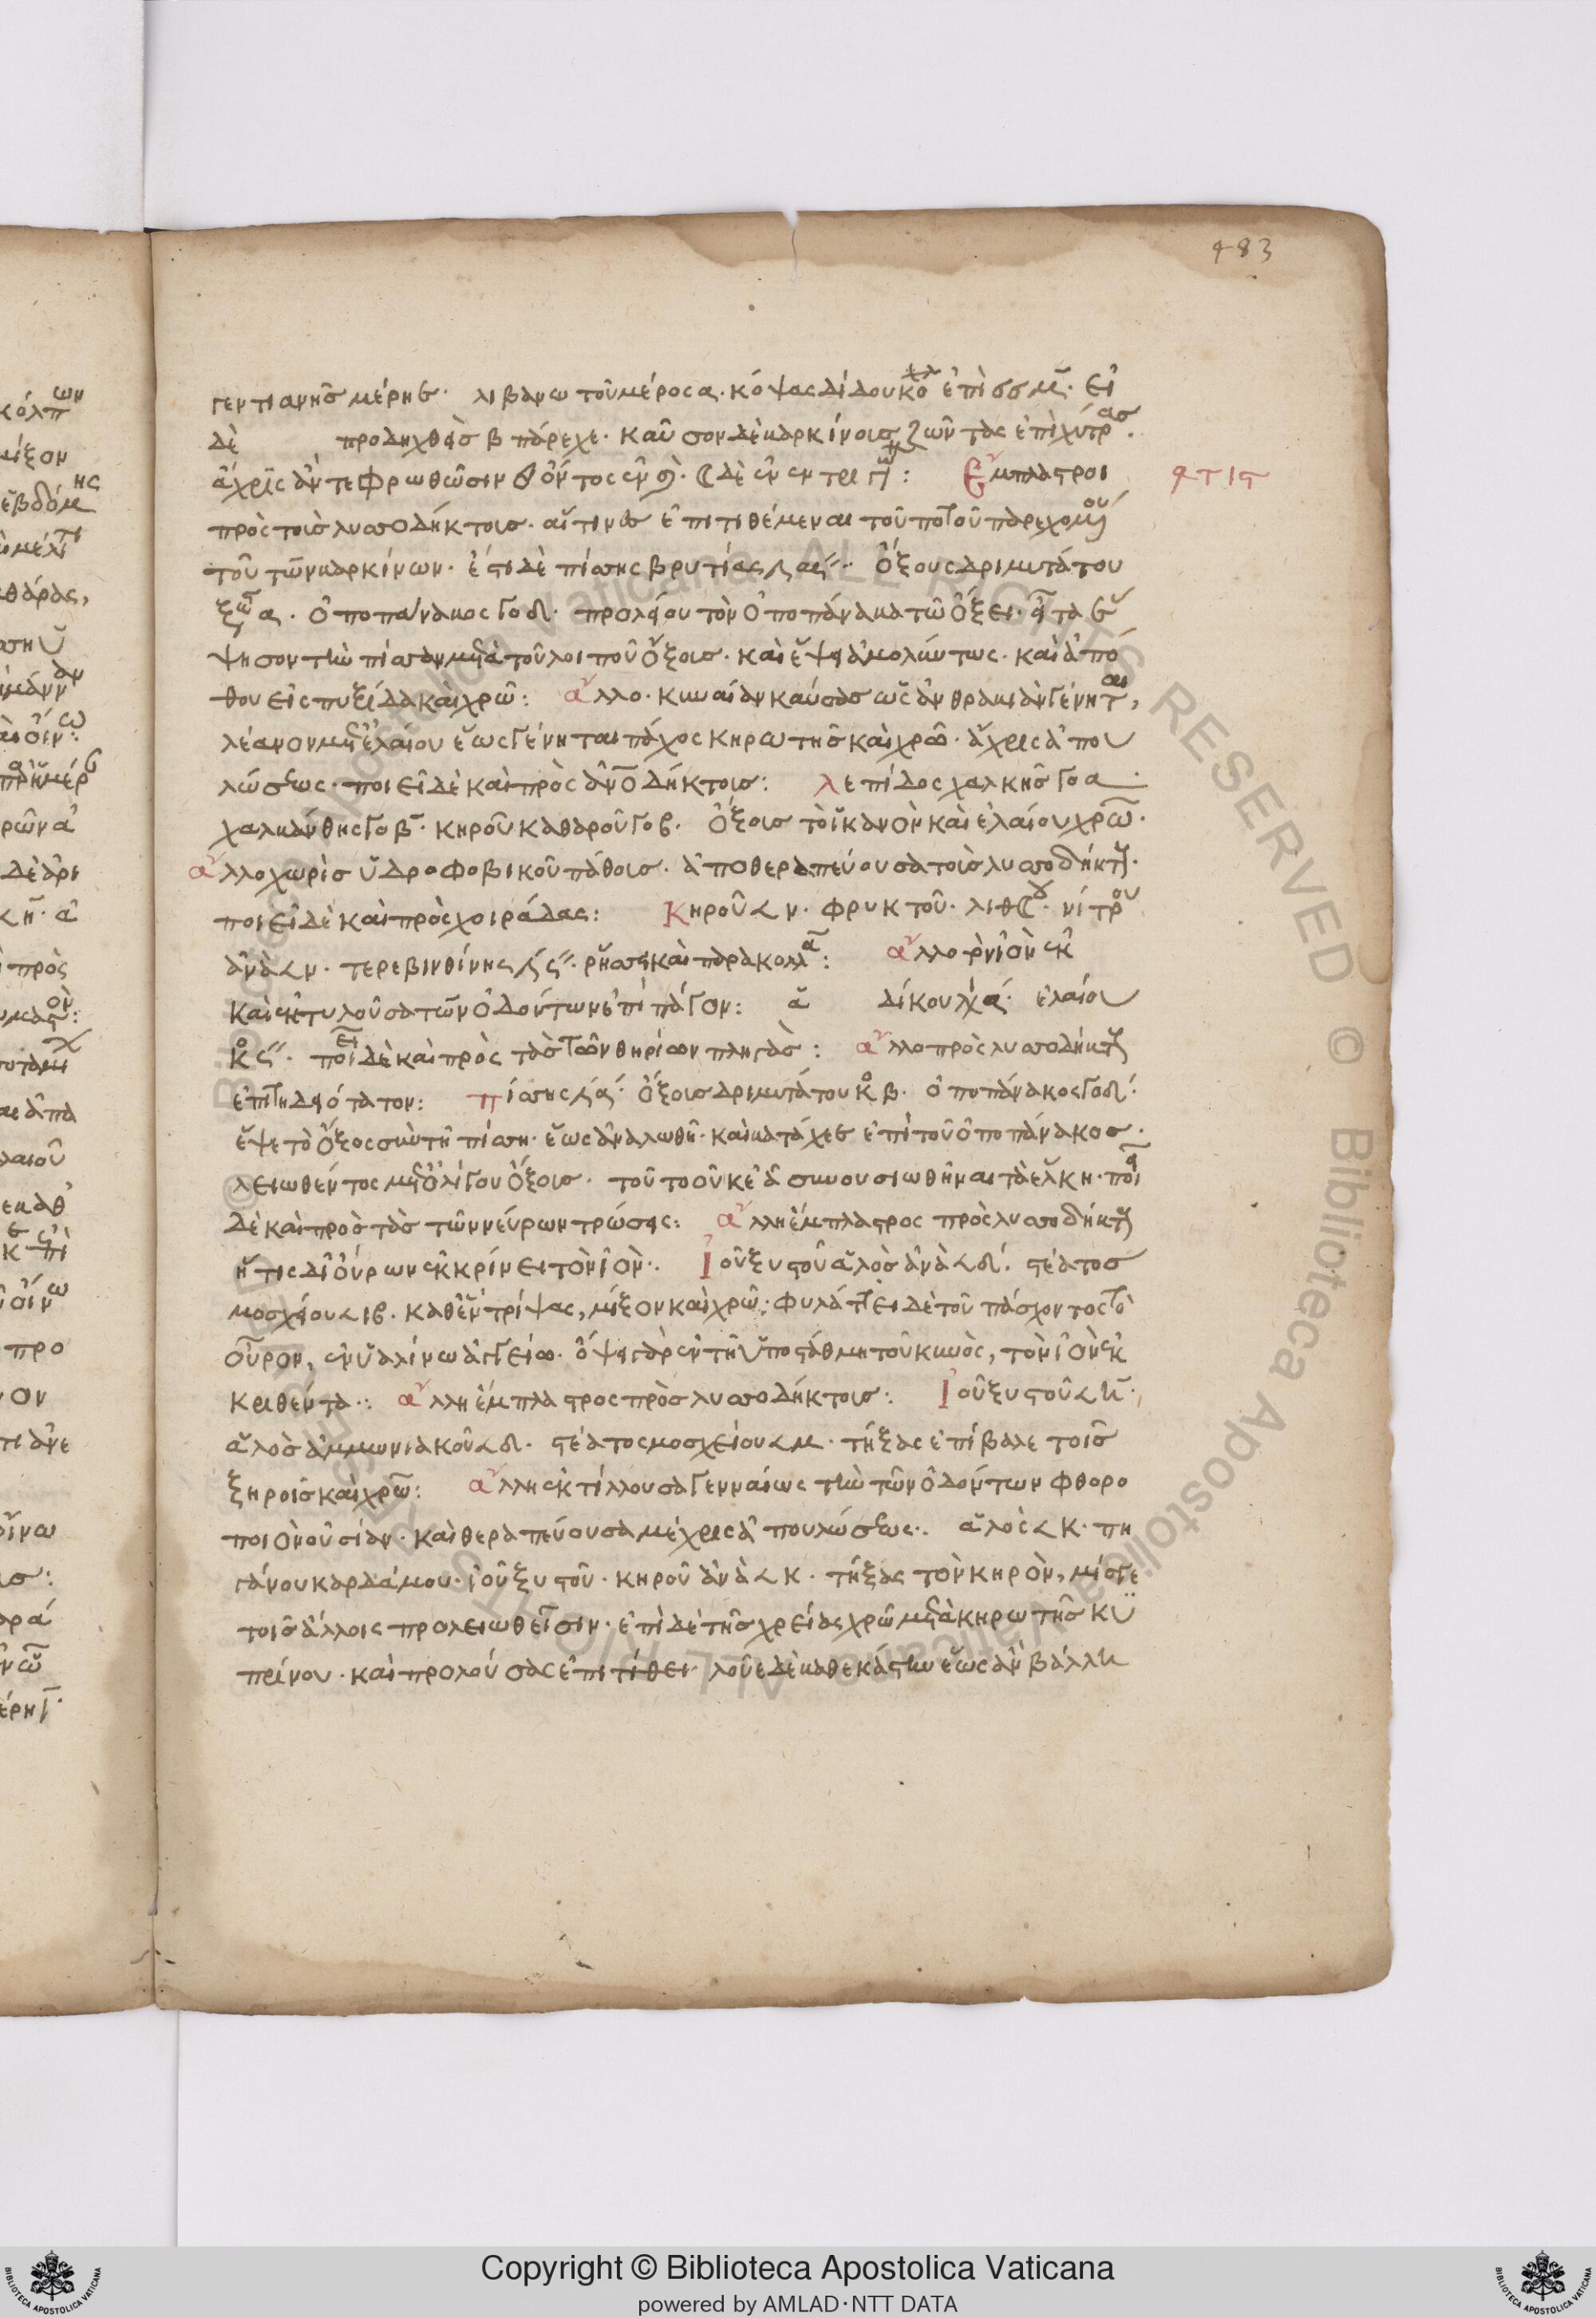 483
γεντιανῆς μέρη ε. λιβανω τοῦ μέρος α. κόψας δίδου ἐπὶ μ. εἰ
δὲ προδηχθεὶς β πάρεχε. καῦσον δὲ καρκίνους ζῶντας ἐπὶ χύτρας.
ἄχρις ἂν τεφρωθῶσιν ὄντος ἐν δὲ ἐν : Ἔμπλαστροι
πρὸς τοὺς λυσσοδήκτους. αἵτινες ἐπιτιθέμεναι τοῦ ποτοῦ παρεχομένου
τοῦ τῶν καρκίνων. ἔστι δὲ πίσσης βρυτίας Ὄξους δριμυτάτου
ξ α. ὀποπάνακος Γο δ. προλείου τὸν ὀποπάνακα τῶ ὄξει. εἶτα ἕ
ψησον τὴν πίσσαν μετὰ τοῦ λοιποῦ ὄξους. καὶ ἕψει ἀμολύντως. καὶ ἀπό
θου εἰς πυξίδα καὶ χρῶ: ἄλλο. κυναίαν καύσας ὡς ἀνθρακιὰν γένηται,
λέανον μετ' ἐλαίου ἕως γένηται πάχος κηρωτῆς καὶ χρῶ. ἄχρις ἀπου
λώσεως. ποιεῖ δὲ καὶ πρὸς ἀνοδήκτους: λεπίδος χαλκῆς Γο α.
χαλκάνθης Γο β. κηροῦ καθαροῦ Γο β. ὄξους τὸ ἱκανὸν καὶ ἐλαίου χρῶ.
ἄλλο χωρὶς ὑδροφοβικοῦ πάθους. ἀποθεραπεύουσα τοὺς λυσσοδήκτους.
ποιεῖ δὲ καὶ πρὸς χοιράδας: Κηροῦ < ν. φρυκτοῦ. νίτρου
ἀνὰ < ν. τερεβινθίνης καὶ παρακολλᾶ: ἄλλο
καὶ ἐκτυλοῦσα τῶν ὀδόντων ἐπίπαγον: δίκου ἐλαίου
ποιεῖ δὲ καὶ πρὸς τὰς τῶν θηρίων πληγάς: ἄλλο πρὸς λυσσοδήκτους
ἐπιτηδειότατον: πίσσης ὄξους δριμυτάτου β. ὀποπάνακος Γο δ.
ἕψε τὸ ὄξος σὺν τῆ πίσση. ἕως ἀναλωθῆ. καὶ κατάχεε ἐπὶ τοῦ ὀποπάνακος.
λειωθέντος μετ' ὀλίγου ὄξους. τοῦτο οὐκ ἐᾶ συνουσιωθῆναι τὰ ἕλκη. ποιεῖ
δὲ καὶ πρὸς τὰς τῶν νεύρων τρώσεις: ἄλλη ἔμπλαστρος πρὸς λυσσοδήκτους
ἥτις δι' οὔρων ἐκκρίνει τὸν ἰόν: Ἰοῦ ξυστοῦ ἁλὸς ἀνὰ < δ. στέατος
μοσχείου < ιβ. καθ' ἓν τρίψας, μίξον καὶ χρῶ: φυλάττει δὲ τοῦ πάσχοντος τὸ
οὖρον, ἐν ὑαλίνω ἀγγείω. ὄψει γὰρ ἐν τῆ ὑποστάθμη τοῦ κυνὸς, τὸν ἰὸν ἐκ
κριθέντα: ἄλλη ἔμπλαστρος πρὸς λυσσοδήκτους: Ἰοῦ ξυστοῦ < η.
ἁλὸς ἀμμωνιακοῦ < δ. στέατος μοσχείου < μ. τήξας ἐπίβαλε τοῖς
ξηροῖς καὶ χρῶ: ἄλλη ἐκτίλλουσα γενναίως τὴν τῶν ὀδόντων φθορο
ποιὸν οὐσίαν. καὶ θεραπεύουσα μέχρις ἀπουλώσεως. ἁλὸς < κ. πη
γάνου καρδάμου. ἰοῦ ξυστοῦ. κηροῦ ἀνὰ < κ. τήξας τὸν κηρὸν, μίσγε
τοῖς ἄλλοις προλειωθεῖσιν. ἐπὶ δὲ τῆς χρείας χρῶ μετὰ κηρωτῆς κυ
πρίνου. καὶ προλούσας ἐπιτίθει. λοῦε δὲ καθεκάστην ἕως ἂν βάλλη
Copyright © Biblioteca Apostolica Vaticana
powered by AMLAD·NTT DATA